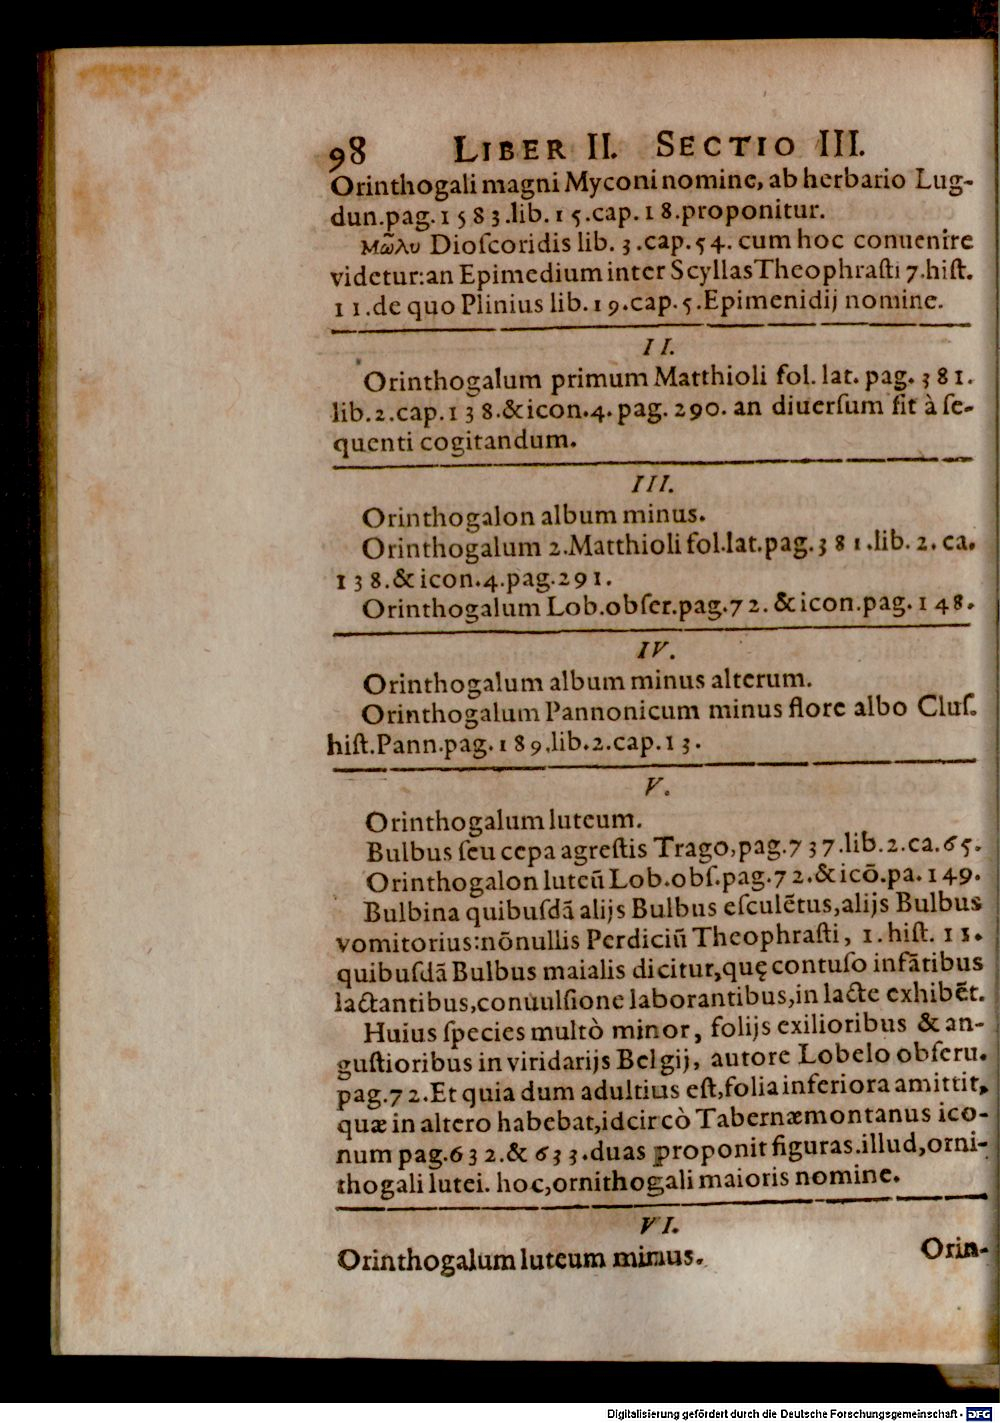 98 LIBER II. SECTIO III.
Orinthogali magni Myconi nomine, ab herbario Lug-
dun.pag.1583.lib.15.cap.18.proponitur.
Μῶλυ Dioſcoridis lib. 3.cap.54. cum hoc conuenire
videtur:an Epimedium inter Scyllas Theophraſti 7.hiſt.
11.de quo Plinius lib.19.cap.5.Epimenidij nomine.
II.
Orinthogalum primum Matthioli fol. lat. pag. 381.
lib.2.cap.138.&icon.4.pag.290. an diuerſum ſit à ſe-
quenti cogitandum.
III.
Orinthogalon album minus.
Orinthogalum 2.Matthioli fol.lat.pag.381.lib.2.ca.
138.& icon.4.pag.291.
Orinthogalum Lob.obſer.pag.72. &icon.pag.148.
IV.
Orinthogalum album minus alterum.
Orinthogalum Pannonicum minus flore albo Cluſ.
hiſt.Pann.pag.189.lib.2.cap.13.
V.
Orinthogalum luteum.
Bulbus ſeu cepa agreſtis Trago,pag.737.lib.2.ca.65.
Orinthogalon luteũ Lob.obſ.pag.72.&icõ.pa.149.
Bulbina quibuſdã alijs Bulbus eſculẽtus,alijs Bulbus
vomitorius:nõnullis Perdiciũ Theophraſti, 1.hiſt. 11.
quibuſdã Bulbus maialis dicitur,quę contuſo infãtibus
lactantibus,conuulſione laborantibus,in lacte exhibẽt.
Huius ſpecies multò minor, folijs exilioribus & an-
guſtioribus in viridarijs Belgij, autore Lobelo obſeru.
pag.72.Et quia dum adultius eſt,folia inferiora amittit,
quæ in altero habebat,idcircò Tabernæmontanus ico-
num pag.632.& 633.duas proponit figuras.illud,orni-
thogali lutei. hoc,ornithogali maioris nomine.
VI.
Orinthogalum luteum minus.
Orin-
Digitalisierung gefördert durch die Deutsche Forschungsgemeinschaft - DFG